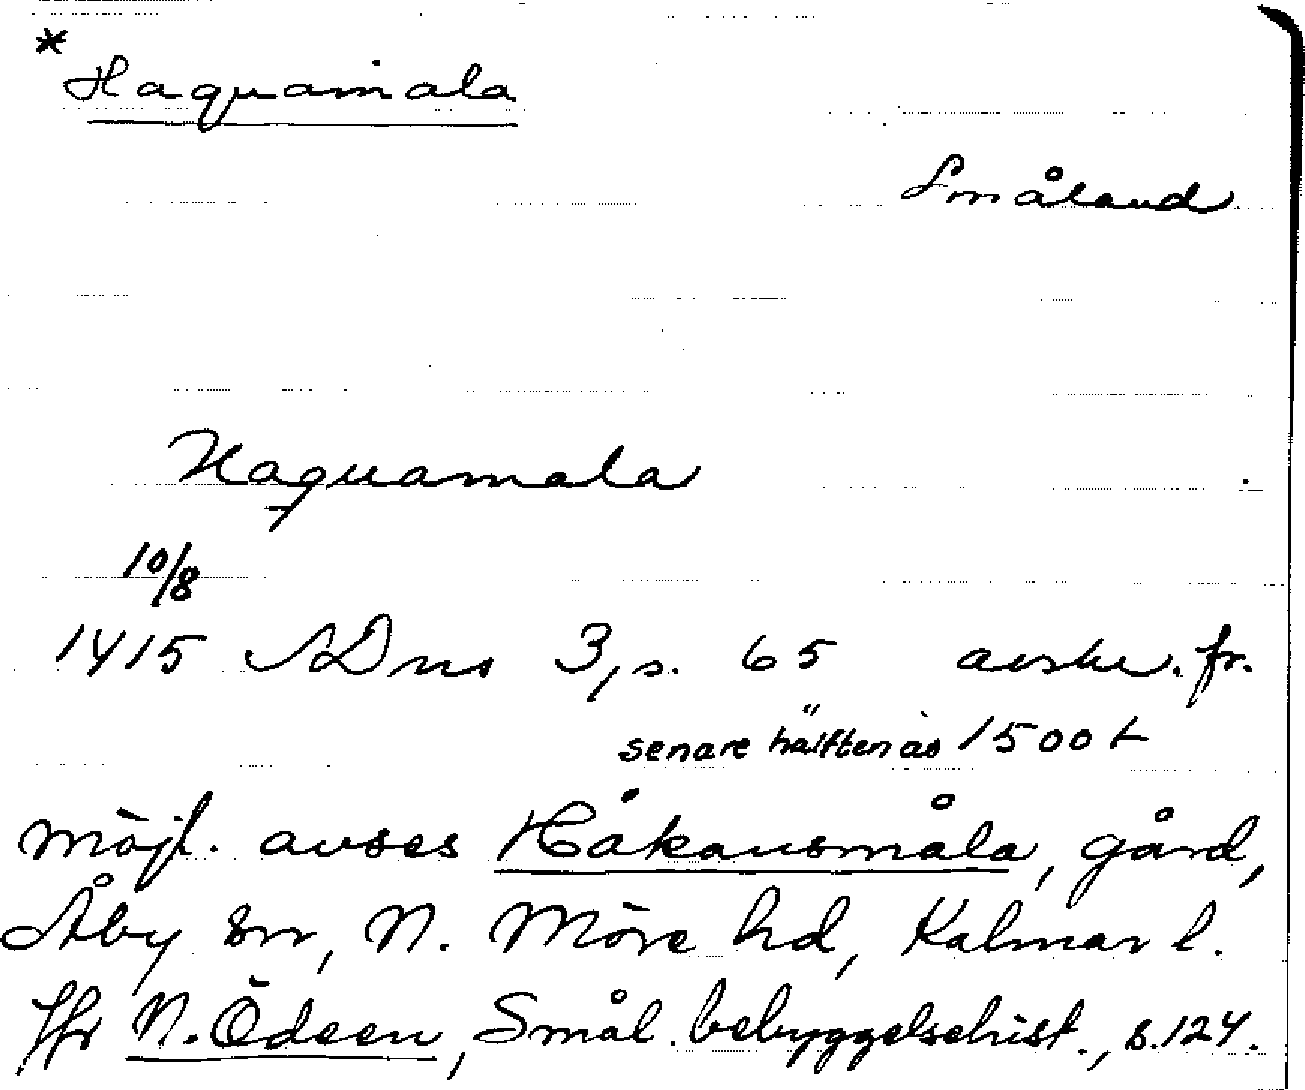 * Haquamala
Småland
Haquamala
10/8
1415 ADns 3, s. 65 avskr. fr.
senare hälften av 1500 t
möjl. avses Håkansmåla, gård,
Åby sn, N. Möre hd, Kalmar l.
Jfr N. Ödeen, Smål. bebyggelsehist., s. 124.